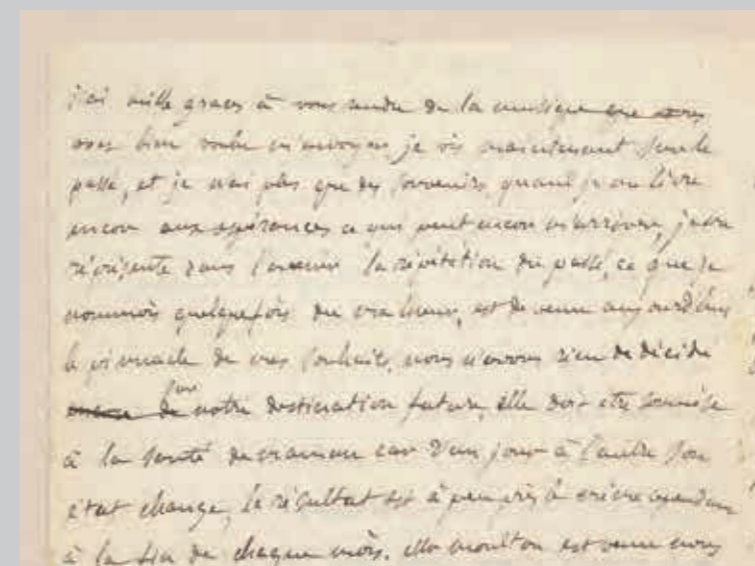 j'ai mille graces à vous rendre de la musique que vous
avez bien voulu m'envoyer, je vis maintenant sur le
passé, et je n'ai plus que des souvenirs, quand je me livre
encore aux espérances ce qui peut encor m'arriver, je me
réprésente dans l'avenir la répétition du passé, ce que je
nommois quelquefois du malheur, est devenu aujourd'hui
le pinnacle de mes souhaits. nous n'avons rien de décidé
sur notre destination future, elle doit etre soumise
à la santé de maman car d'un jour à l'autre son
état change, le résultat est à peu près le même cependant
à la fin de chaque mois. moulton est venue nous